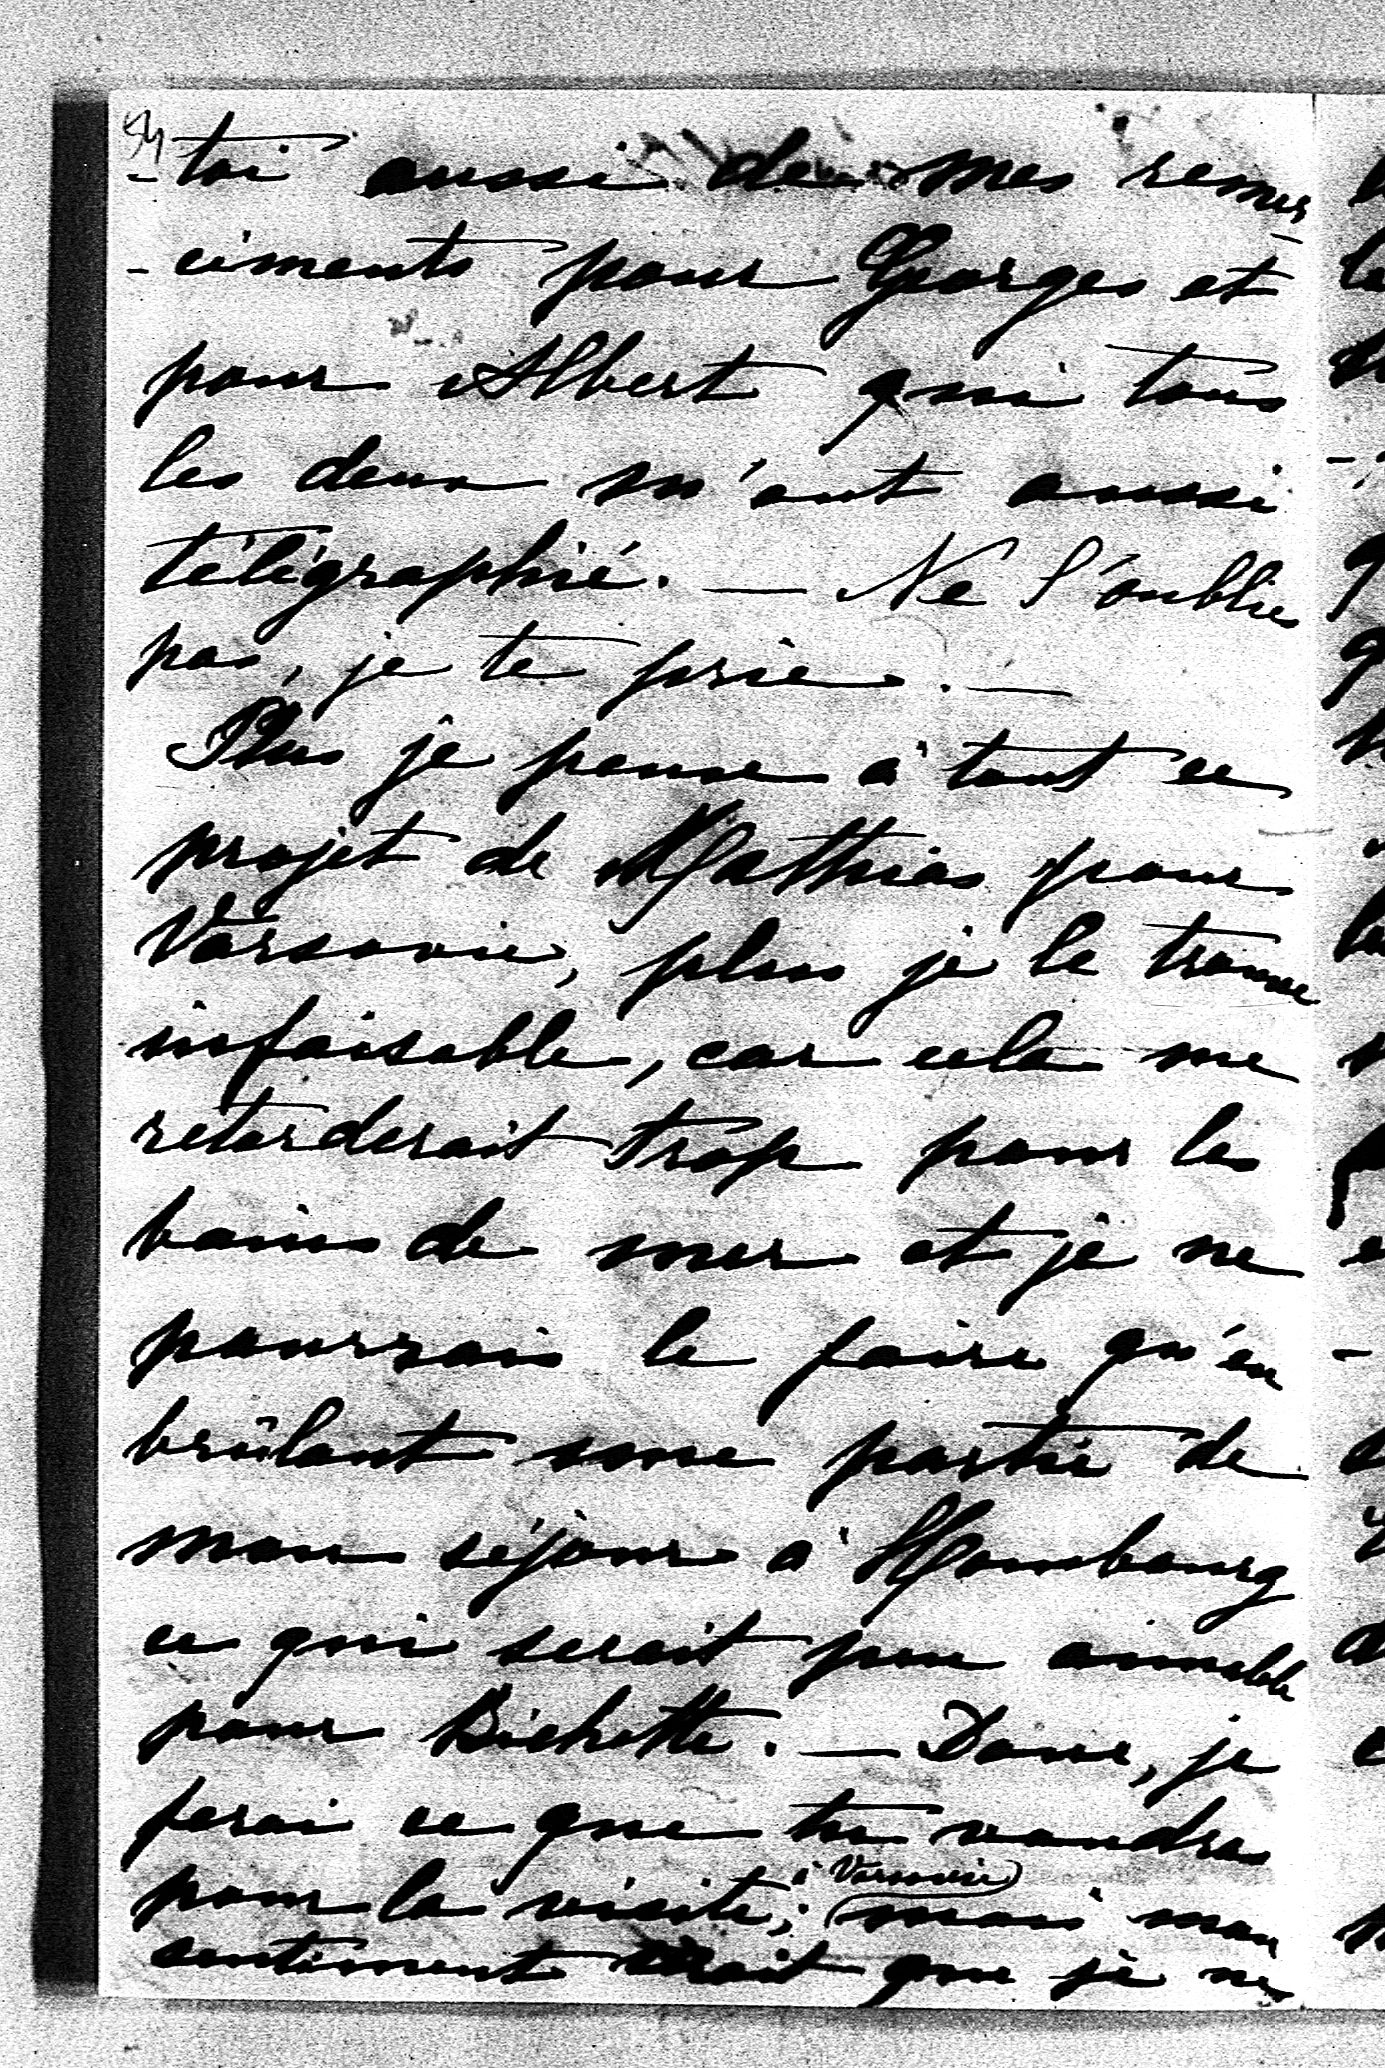 54
-toi aussi de mes remer
-ciments pour Georges et
pour Albert qui tous
les deux m'ont aussi
télégraphié. — Ne l'oublie
pas, je te prie. —
Plus je pense à tout ce
projet de Mathias pour
Varsovie, plus je le trouve
infaisable, car cela me
retarderait trop pour les
bains de mer et je ne
pourrais le faire qu'en
brûlant une partie de
mon séjour à Hombourg
ce qui serait peu aimable
pour Bichette. — Donc, je
ferai ce que tu voudras
à Varsovie
pour la visite; mais mon
sentiment serait que je ne